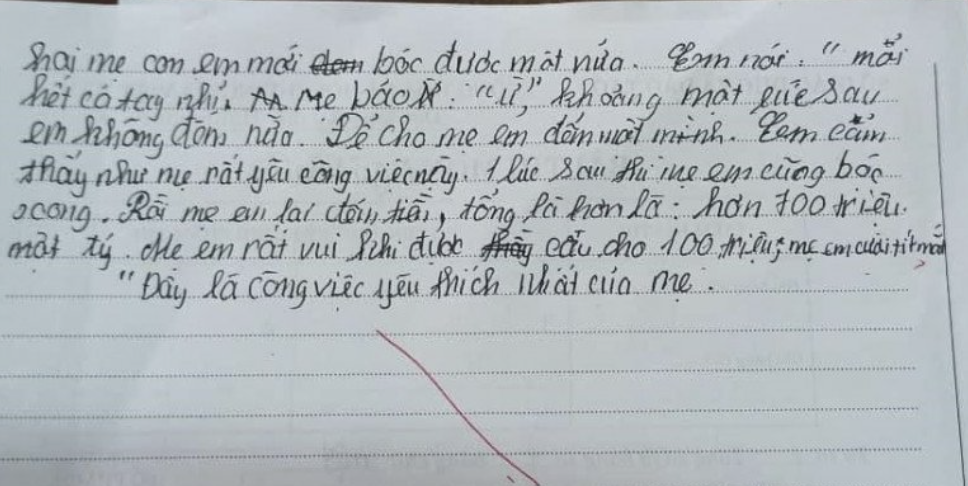 hai mẹ con em mới bóc được một nửa. Em nói: "mỏi
hết cả tay nhỉ". Mẹ bảo: "Ừ", khoảng một lúc sau
em không đếm nữa. Để cho mẹ em đếm một mình. Em cảm
thấy như mẹ rất yêu công việc này. 1 lúc sau thì mẹ em cũng bóc
xong. Rồi mẹ em lại đếm tiền, tổng là hơn là: hơn 100 triệu
một tý. Mẹ em rất vui khi được cầu cho 100 triệu, mẹ em cười tít mắt
"Đây là công việc yêu thích nhất của mẹ.